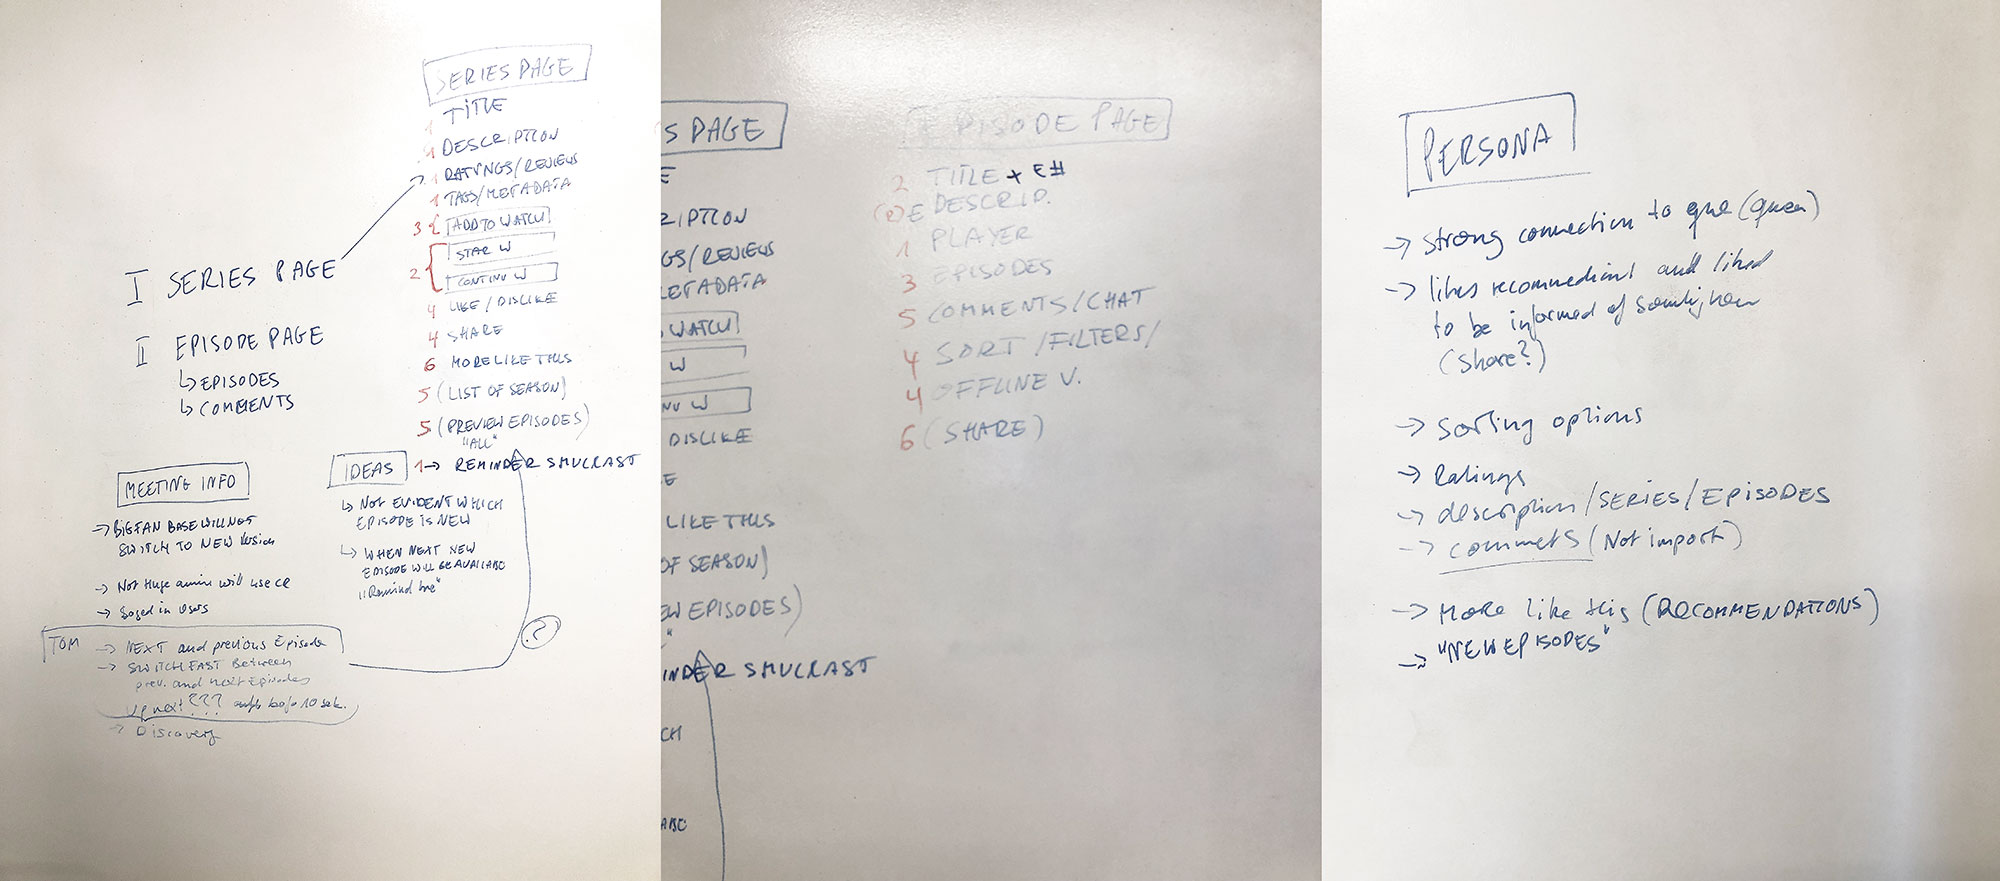 SERIES PAGE
TITLE
1 DESCRIPTION
1 RATINGS/REVIEWS
1 TAGS/METADATA
3 ADD TO WATCH
STAR W
2
CONTINU W
4 LIKE / DISLIKE
4 SHARE
6 MORE LIKE THIS
5 (LIST OF SEASON)
5 (PREVIEW EPISODES)
"ALL"
1 → REMINDER SMUCRAST
I SERIES PAGE
II EPISODE PAGE
↳ EPISODES
↳ COMMENTS
MEETING INFO
→ BIG FAN BASE WILL NOT
SWITCH TO NEW Version
→ Not Huge will use CR
→ in users
TOM → NEXT and previous Episode
→ SWITCH FAST Between
prev. and next Episodes
Up next ??? 10 sek.
→ Discovery
IDEAS
↳ NOT EVIDENT WHICH
EPISODE IS NEW
↳ WHEN NEXT NEW
EPISODE WILL BE AVAILABE
"Remind me"
?
S PAGE
E
RIPTION
GS/REVIEWS
METADATA
WATCH
W
NU W
DISLIKE
E
LIKE THIS
OF SEASON)
EW EPISODES)
INDER SMUCRAST
CH
ABE
PISODE PAGE
2 TITLE + E#
(2) E DESCRIP.
1 PLAYER
3 EPISODES
5 COMMENTS/CHAT
4 SORT /FILTERS/
4 OFFLINE V.
6 (SHARE)
PERSONA
→ strong connection to
→ likes and liked
to be informed of
(share?)
→ sorting options
→ Ratings
→ description/SERIES/EPISODES
→ commets (Not import)
→ More like this (RECOMMENDATIONS)
→ "NEW EPISODES"